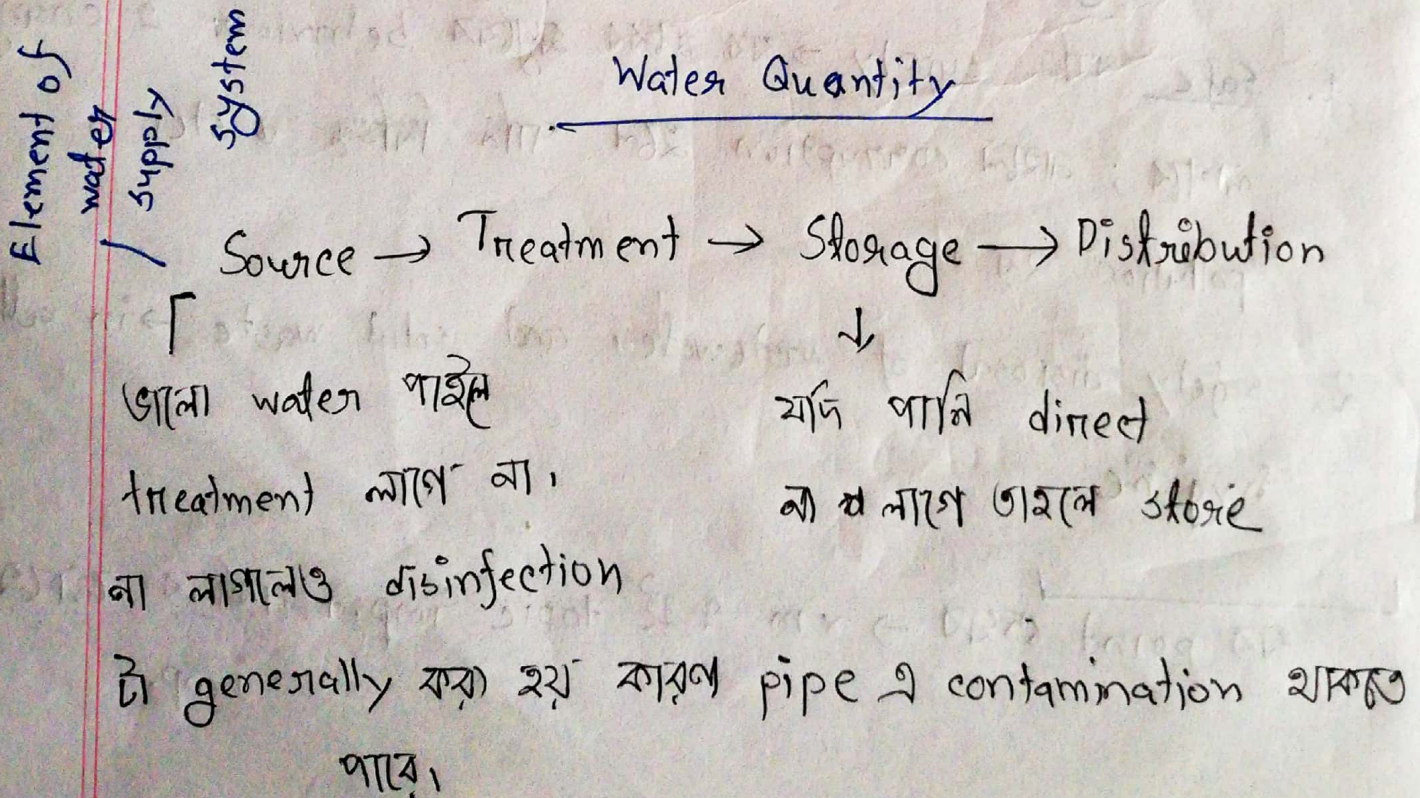 Element of
water
supply
system
Water Quantity
Source → Treatment → Storage → Distribution
↓
ভালো water পাইলে
treatment লাগে না।
না লাগলেও disinfection
টা generally করা হয় কারণ pipe এ contamination থাকতে
পারে।
যদি পানি direct
না লাগে তাহলে store